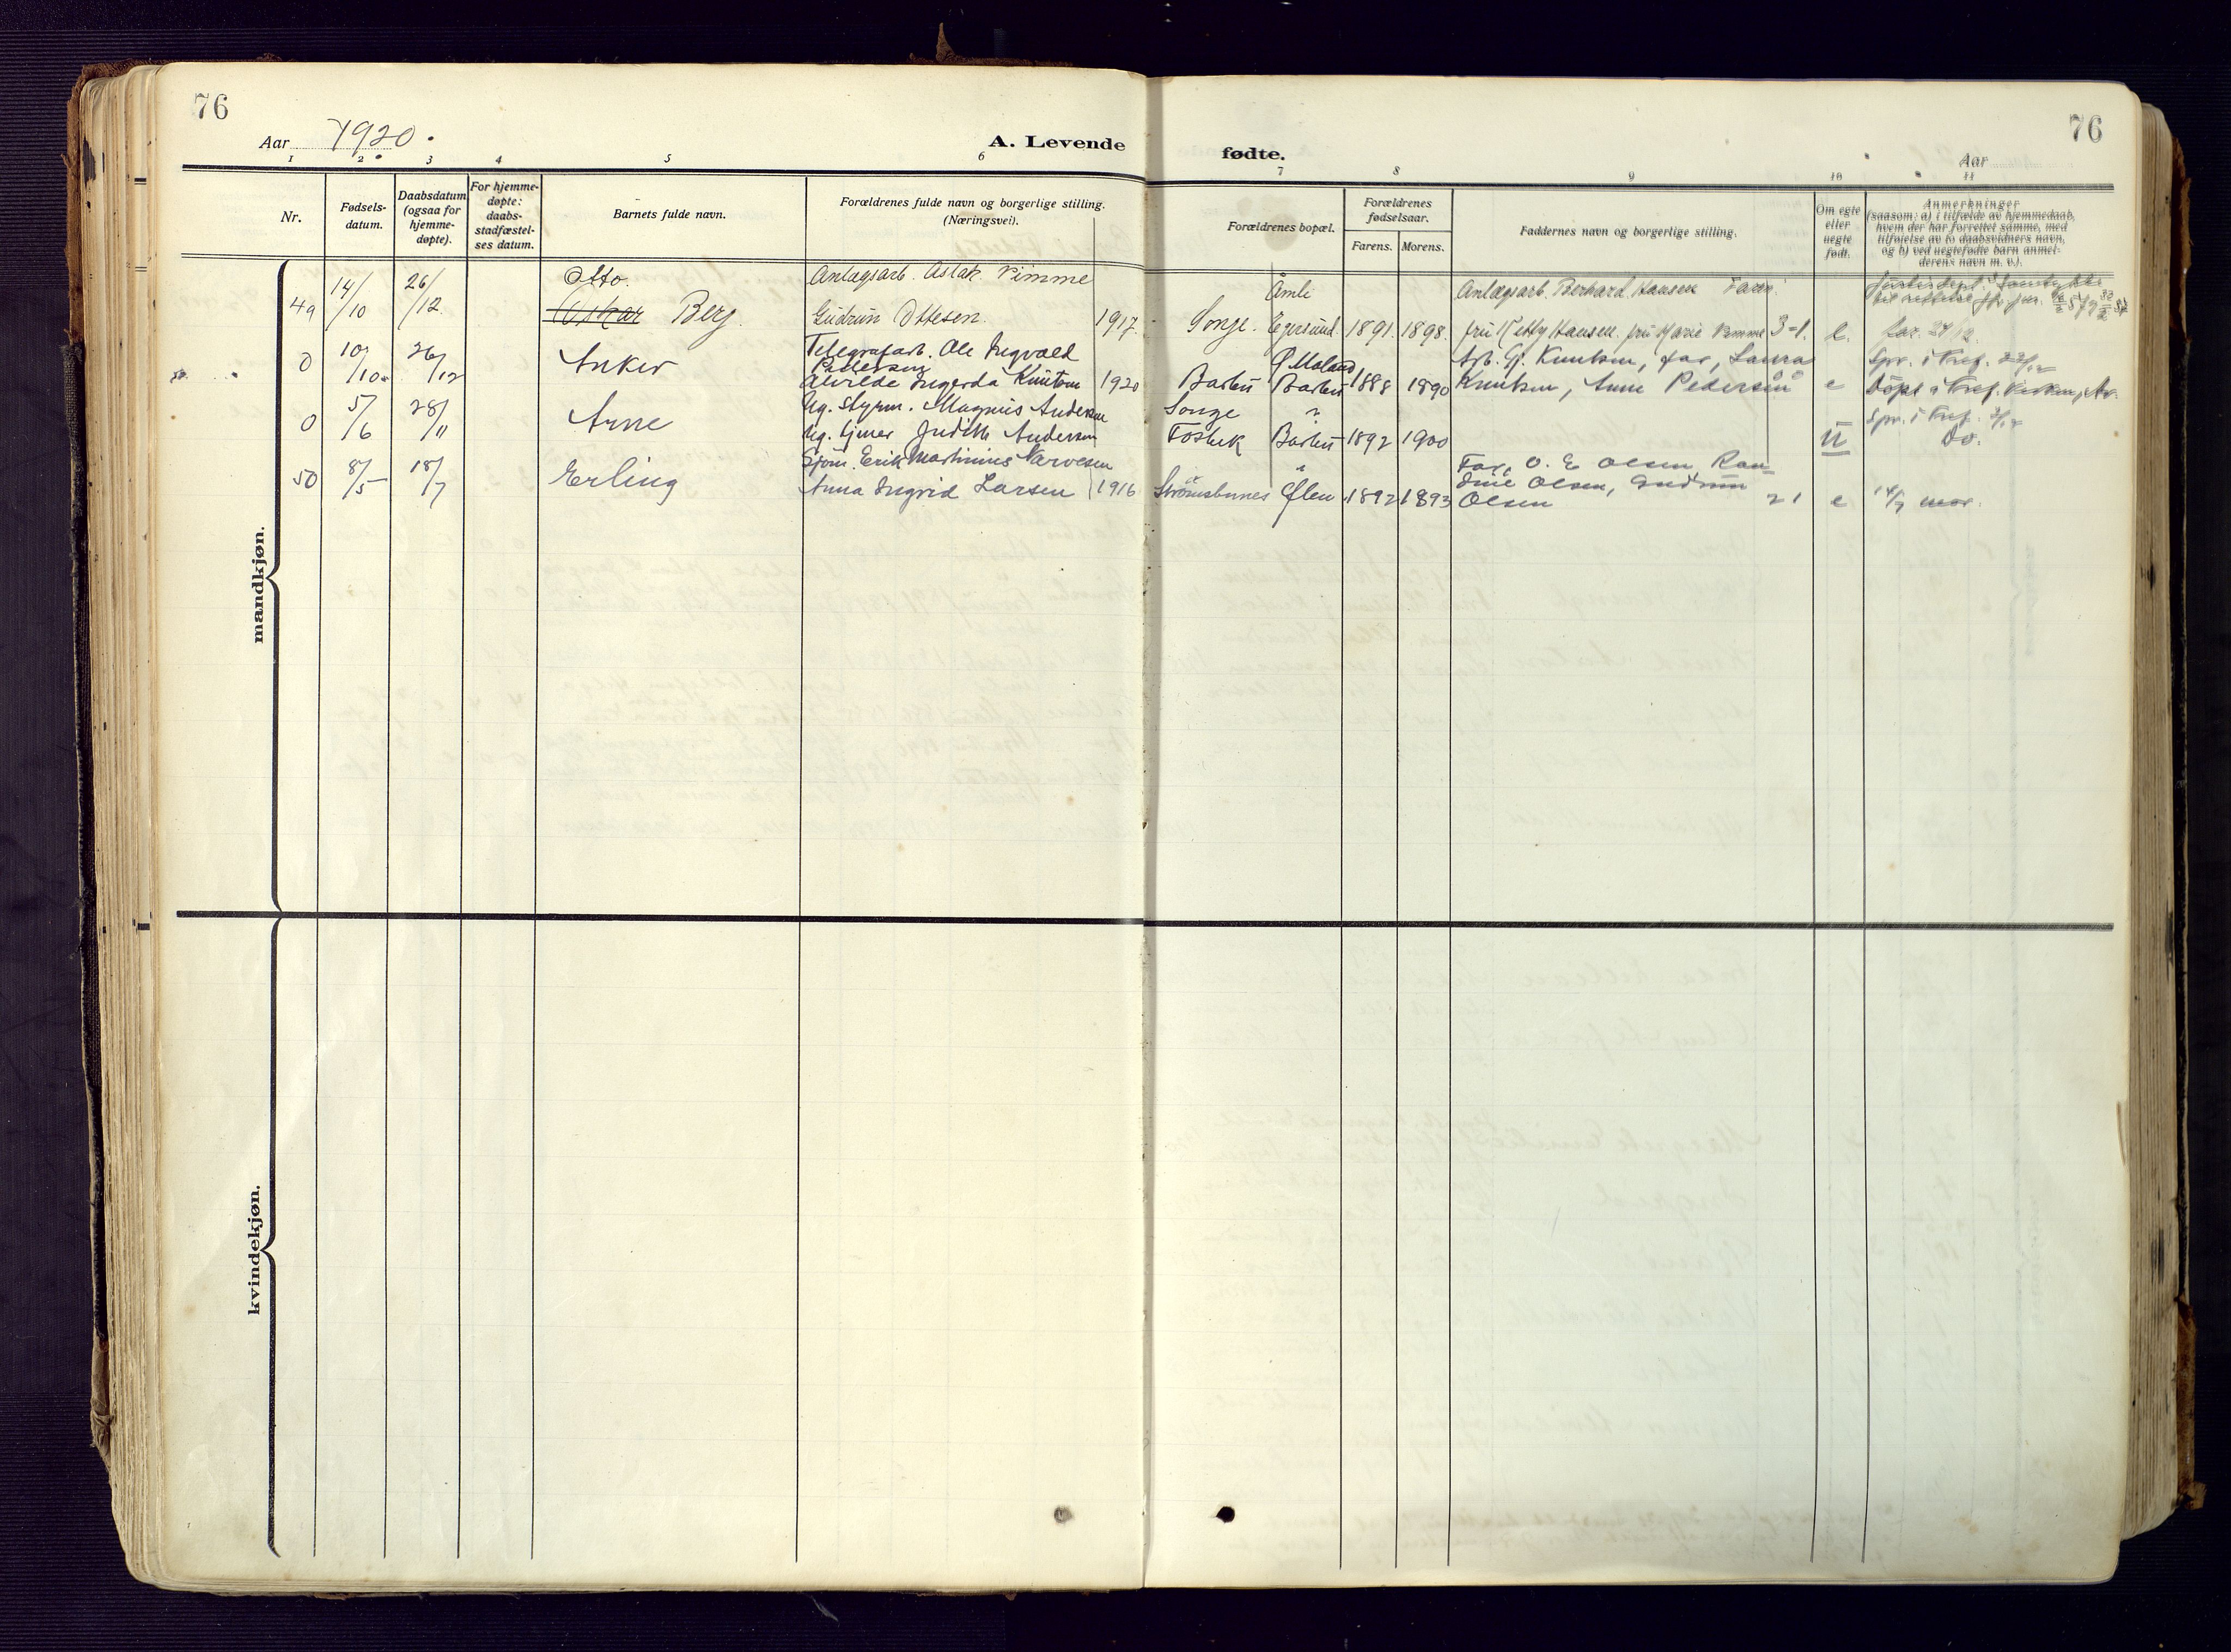 76
76
Aar 1920.
A. Levende
fødte.
Aar
1 2 3 4 5 6 7 8 9 10 11
Nr.
Fødsels-
datum.
Daabsdatum
(ogsaa for
hjemme-
døpte).
For hjemme-
døpte:
daabs-
stadfæstel-
ses datum.
Barnets fulde navn.
Forældrenes fulde navn og borgerlige stilling.
(Næringsvei).
Forældrenes bopæl.
Forældrenes
fødselsaar.
Farens. Morens.
Faddernes navn og borgerlige stilling.
Om egte
eller
uegte
født.
Anmerkninger
(saasom: a) i tilfælde av hjemmedaab,
hvem der har forrettet samme, med
tilføielse av to daabsvidners navn,
og b) ved uegtefødte barn anmel-
derens navn m. v.).
mandkjøn.
49
14/10
26/12.
Otto.
Oskar Berg.
Anlægsarb. Aslak Vimme
Gudrun Ottesen. 1917.
Songe.
Åmli
Egersund
1891. 1898.
Anlægsarb. Berhard Hansen Faren.
fru Hansen. fru Marie Vimme 3-1.
e.
far. 27/12.
0
10/10
26/12
Anker
Telegrafarb. Ole Ingvald
Pedersen
Alvilde Ingerda Knutsen 1920
Barbu
Ø Moland
Barbu
1888 1890
Arb. G. Knutsen, far, Laura
Knutsen, Anne Pedersen
e
0
5/6
28/11
Arne
Ug. Styrm. Magnus Andersen
Ug. tjener Judith Andersen
Songe
?
Barbu
1892 1900
U
do.
50
8/5
18/7
Erling
Sjøm. Erik Martinius Narvesen
Anna Ingrid Larsen 1916
Strømsbunes
Øien
1892 1893
Far, O. E Olsen, Ran-
dine Olsen, Gudrun
Olsen 2 1
e
14/7 mor.
kvindekjøn.